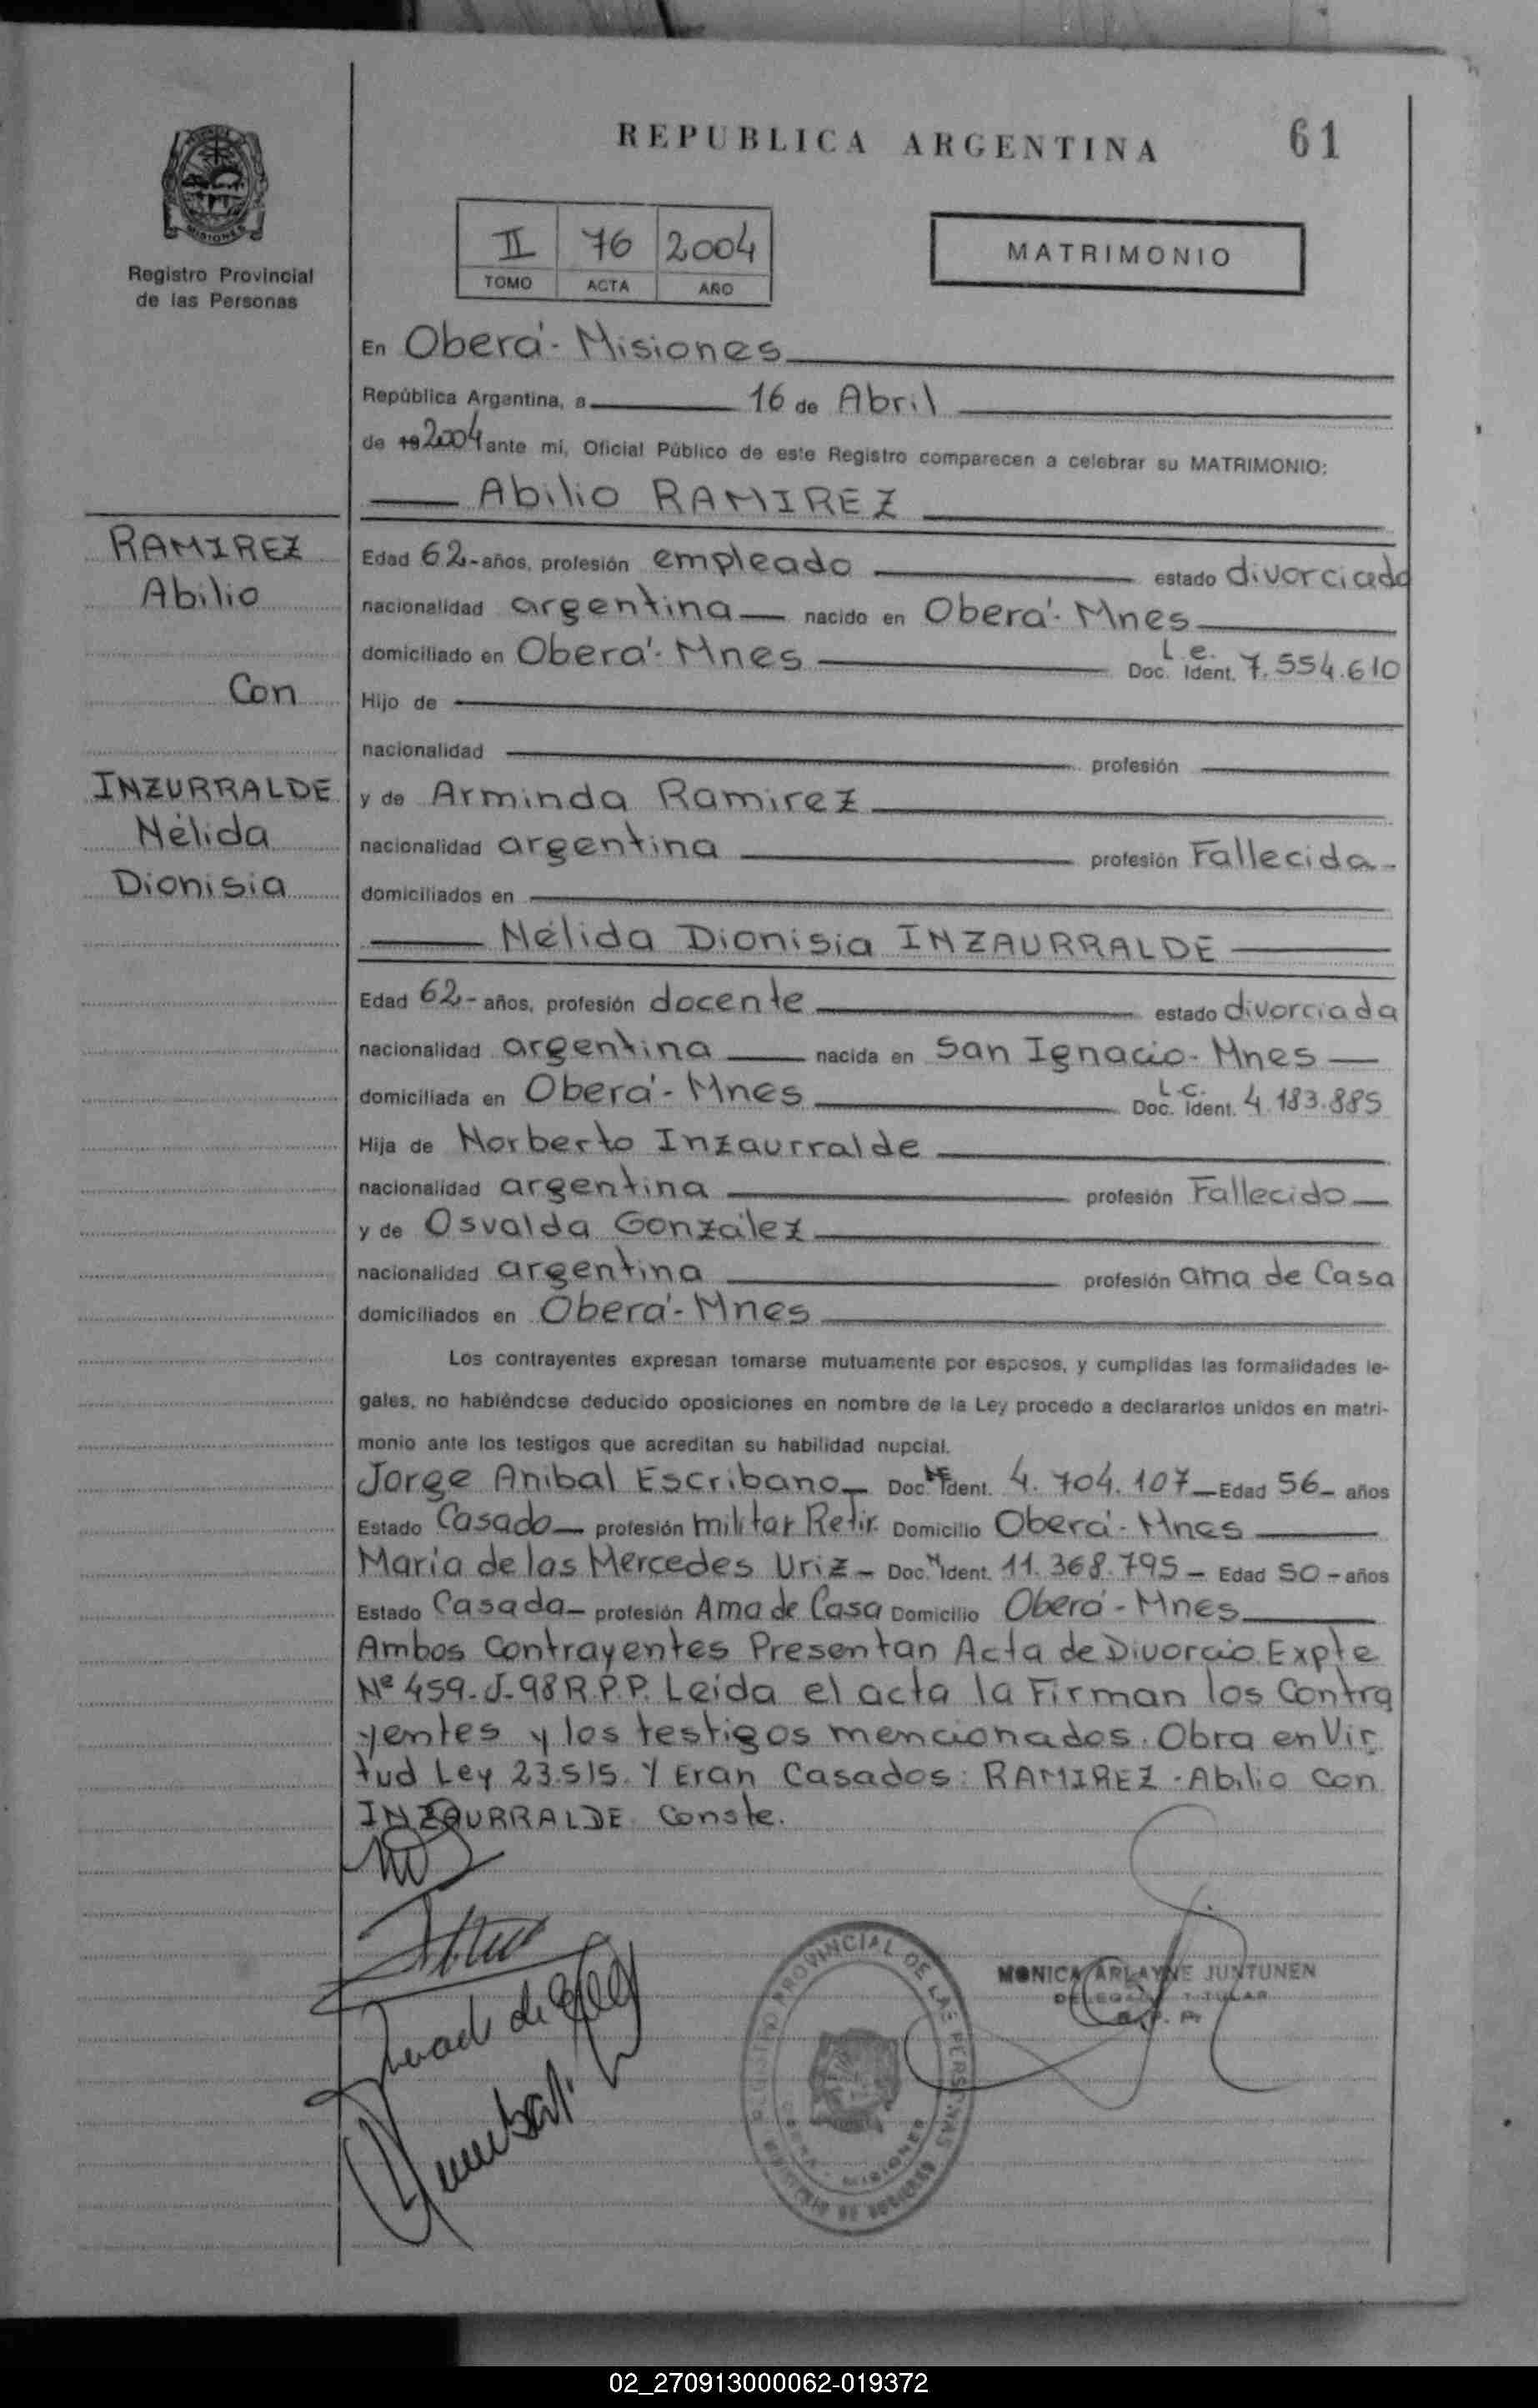 REPUBLICA ARGENTINA
61
MISIONES
Registro Provincial
de las Personas
II 76 2004
TOMO ACTA AÑO
MATRIMONIO
En Oberá - Misiones
República Argentina, a 16 de Abril
de 19 2004 ante mi, Oficial Público de este Registro comparecen a celebrar su MATRIMONIO:
Abilio RAMIREZ
RAMIREZ
Abilio
Con
INZURRALDE
Nélida
Dionisia
Edad 62- años, profesión empleado estado divorciado
nacionalidad argentina nacido en Oberá - Mnes
domiciliado en Oberá - Mnes L.e. Doc. Ident. 7.554.610
Hijo de
nacionalidad profesión
y de Arminda Ramirez
nacionalidad argentina profesión Fallecida
domiciliados en
Nélida Dionisia INZAURRALDE
Edad 62- años, profesión docente estado divorciada
nacionalidad argentina nacida en San Ignacio - Mnes
domiciliada en Oberá - Mnes L.C. Doc. Ident. 4.183.885
Hija de Norberto Inzaurralde
nacionalidad argentina profesión Fallecido
y de Osvalda González
nacionalidad argentina profesión ama de Casa
domiciliados en Oberá - Mnes
Los contrayentes expresan tomarse mutuamente por esposos, y cumplidas las formalidades le-
gales, no habiéndose deducido oposiciones en nombre de la Ley procedo a declararlos unidos en matri-
monio ante los testigos que acreditan su habilidad nupcial.
Jorge Anibal Escribano Doc. Ident. 4.704.107 Edad 56- años
Estado Casado profesión militar Retir. Domicilio Oberá - Mnes
Maria de las Mercedes Uriz - Doc. Ident. 11.368.795 - Edad 50 - años
Estado Casada profesión Ama de Casa Domicilio Oberá - Mnes
Ambos Contrayentes Presentan Acta de Divorcio Expte
Nº 459-J-98 R.P.P. Leida el acta la Firman los Contra
yentes y los testigos mencionados. Obra en Vir
tud Ley 23.515. Y Eran Casados: RAMIREZ - Abilio Con
INZAURRALDE. Conste.
REGISTRO PROVINCIAL DE LAS PERSONAS
MISIONES
MINISTERIO DE GOBIERNO
MONICA ARLAYNE JUNTUNEN
DELEGADA TITULAR
02_270913000062-019372